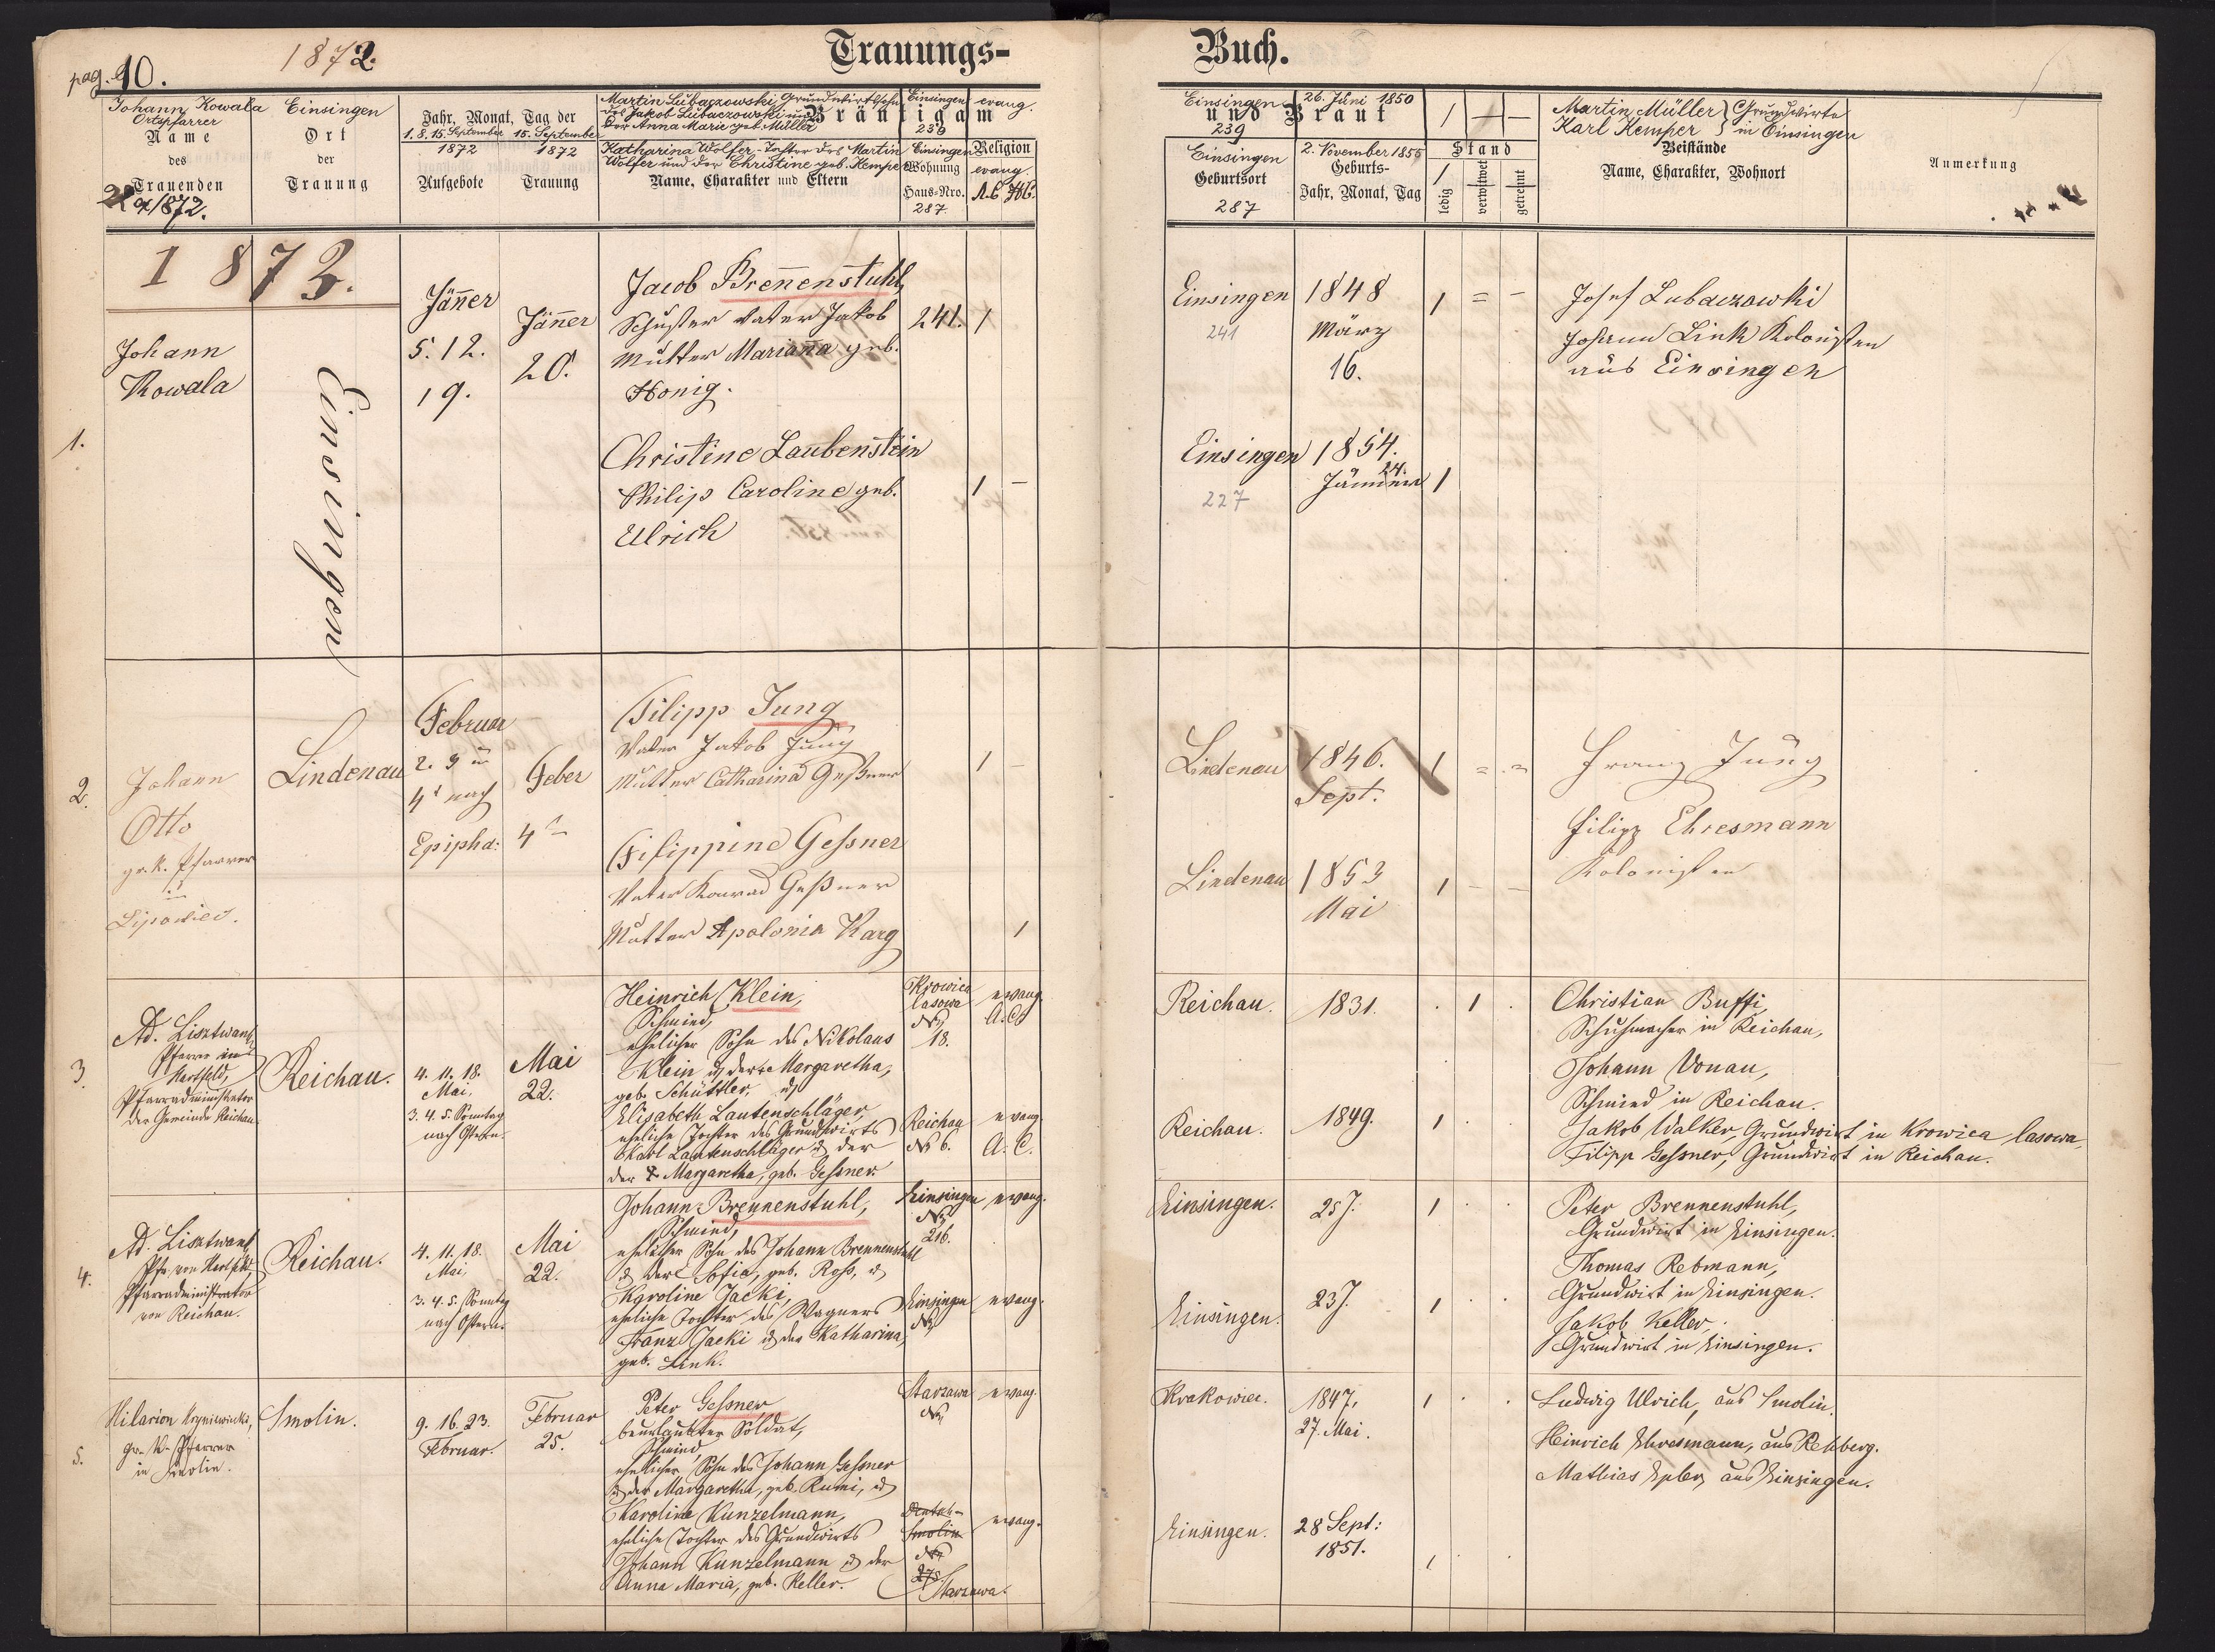 pag. 10.
1872.
Trauungs-
Buch.
Johann Kowala
Ortspfarrer
Einsingen
1. 8. 15. September
1872
15. September
1872
Martin Lubaczowski Grundwirtssohn
des Jakob Lubaczowski und
der Anna Marie geb. Müller
Einsingen
239
evang.
Katharina Wolfer - Tochter des Martin
Wolfer und der Christine geb. Kemper
Einsingen
287
evang.
Einsingen
239
26. Juni 1850
1 — —
Martin Müller } Grundwirte
Karl Kemper } in Einsingen
Einsingen
287
2. November 1855
1
Name
des
Trauenden
Ort
der
Trauung
Jahr, Monat, Tag der
Aufgebote
Trauung
Bräutigam
Name, Charakter und Eltern
Wohnung
Haus-Nro.
Religion
und Braut
Geburtsort
Geburts-
Jahr, Monat, Tag
Stand
ledig
verwitwet
getrennt
Beistände
Name, Charakter, Wohnort
Anmerkung
1873.
1.
Johann
Kowala
Einsingen
Jänner
5. 12.
19.
Jänner
20.
Jacob Brennenstuhl
Schuster Vater Jakob
Mutter Marianna geb.
Honig.
241.
1
Christine Laubenstein
Philip Caroline geb.
Ulrich
1 —
Einsingen
241
1848
März
16.
1 = —
Josef Lubaczowski
Johann Link Kolonisten
aus Einsingen
Einsingen
227
1854.
24.
Jänner
1
2.
Johann
Otto
gr. k. Pfarrer
in
Lipowiec.
Lindenau
Februar
2. 3 u
4t nach
Epipha:
Feber
4t
Filipp Jung
Vater Jakob Jung
Mutter Catharina Geßner
1 —
Filippine Gessner
Vater Konrad Geßner
Mutter Apolonia Karg
1
Lindenau
1846.
Sept.
1 = =
Franz Jung
Filipp Ehresmann
Kolonisten
Lindenau
1853
Mai
1 — —
3.
Ad. Lisztwan,
Pfarrer in
Hartfeld,
Pfarradministrator
der Gemeinde Reichau
Reichau.
4. 11. 18.
Mai,
3. 4. 5. Sonntag
nach Ostern.
Mai
22.
Heinrich Klein,
Schmied,
ehelicher Sohn des Nikolaus
Klein u. der Margaretha,
geb. Schüttler, u.
Krowica
lasowa
No
18.
evang.
A. C.
Elisabeth Lautenschläger,
eheliche Tochter des Grundwirts
Karl Lautenschläger u. der
der Margaretha, geb. Gessner
Reichau
No 6.
evang.
A. C.
Reichau.
1831.
. 1 .
Christian Buffi,
Schuhmacher in Reichau,
Johann Vonau,
Schmied in Reichau.
Jakob Walker, Grundwirt in Krowica lasowa,
Filipp Gessner, Grundwirt in Reichau.
Reichau.
1849.
1 . .
4.
Ad. Lisztwan,
Pfr. von Hartfeld
Pfarradministrator
von Reichau.
Reichau.
4. 11. 18.
Mai,
3. 4. 5. Sonntag
nach Ostern.
Mai
22.
Johann Brennenstuhl,
Schmied,
ehelicher Sohn des Johann Brennenstuhl
u. der Sofia, geb. Ross, u.
Einsingen
No
216.
evang.
Karoline Jacki,
eheliche Tochter des Wagners
Franz Jacki u. der Katharina,
geb. Link.
Einsingen
No
evang.
Einsingen.
25 J.
1 . .
Peter Brennenstuhl,
Grundwirt in Einsingen.
Thomas Rebmann,
Grundwirt in Einsingen.
Jakob Keller,
Grundwirt in Einsingen.
Einsingen.
23 J.
1 . .
5.
Hilarion
gr. k. Pfarrer
in Smolin.
Smolin.
9. 16. 23.
Februar.
Februar
25.
Peter Gessner
beurlaubter Soldat,
Schmied,
ehelicher Sohn des Johann Gessner
u. der Margaretha, geb. Rumi, u.
Starzawa
No
evang.
Karoline Kunzelmann,
eheliche Tochter des Grundwirts
Johann Kunzelmann u. der
Anna Maria, geb. Keller.
Deutsch-
Smolin
No
275.
Starzawa.
evang.
Krakowiec.
1847,
27. Mai.
1 . .
Ludwig Ulrich, aus Smolin.
Heinrich Ehresmann, aus Rehberg.
Mathias Epler, aus Einsingen.
Einsingen.
28 Sept:
1851.
1 . .